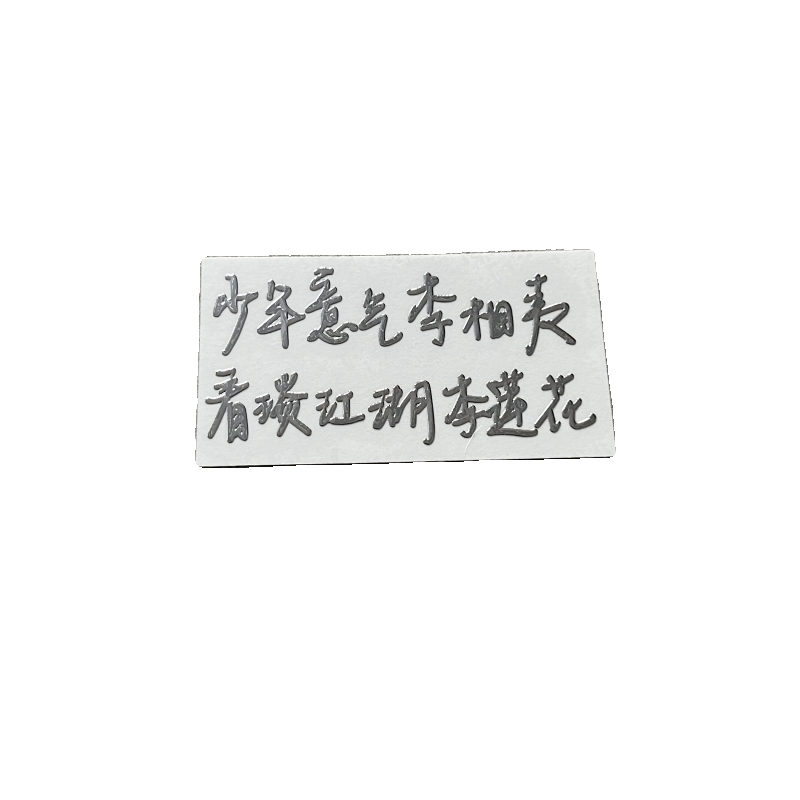 少年意气李相夷
看淡江湖李莲花